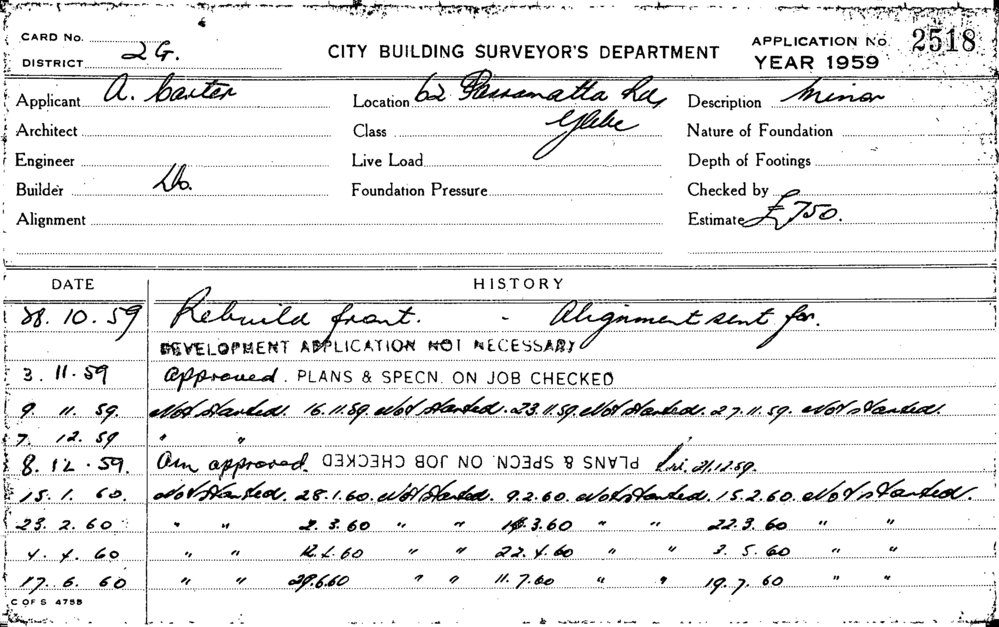 CARD No.
DISTRICT 2G.
CITY BUILDING SURVEYOR'S DEPARTMENT
APPLICATION No. 2518
YEAR 1959
Applicant A. Carter Location 62 Parramatta Rd, Description Minor
Architect Class Glebe Nature of Foundation
Engineer Live Load Depth of Footings
Builder Do. Foundation Pressure Checked by
Alignment Estimate £750.
DATE HISTORY
28. 10. 59 Rebuild front. - Alignment sent for.
DEVELOPMENT APPLICATION NOT NECESSARY
3. 11. 59 Approved. PLANS & SPECN. ON JOB CHECKED
9. 11. 59. Not Started. 16.11.59. Not Started. 23.11.59. Not Started. 27.11.59. Not Started.
7. 12. 59 " "
8. 12. 59. Am approved. PLANS & SPECN. ON JOB CHECKED 21.12.59.
15. 1. 60. Not Started. 28.1.60. Not Started. 9.2.60. Not Started. 15.2.60. Not Started.
23. 2. 60 " " 2. 3. 60 " " 3. 60 " " 22. 3. 60 " "
4. 4. 60 " " 60 " " 22. 4. 60 " " 3. 5. 60 " "
17. 6. 60 " " 29.6.60 " " 11. 7. 60 " " 19. 7. 60 " "
C OF S 4755